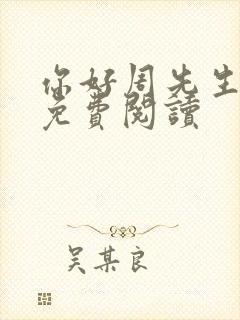 你好周先生
免費閱讀
吴某良